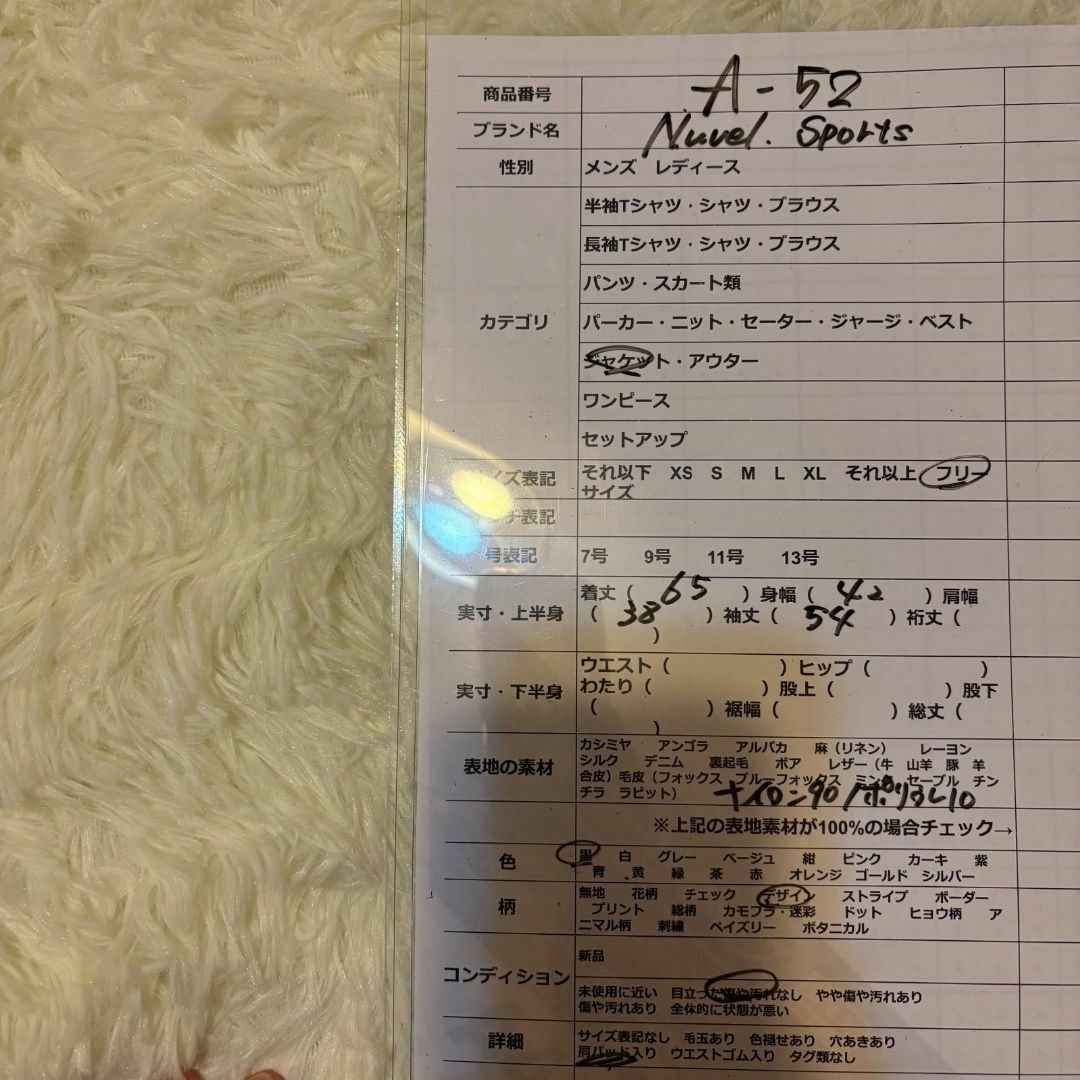 商品番号 A-52
ブランド名 Nuvel. Sports
性別 メンズ レディース
半袖Tシャツ・シャツ・ブラウス
長袖Tシャツ・シャツ・ブラウス
パンツ・スカート類
カテゴリ パーカー・ニット・セーター・ジャージ・ベスト
ジャケット・アウター
ワンピース
セットアップ
イズ表記 それ以下 XS S M L XL それ以上 フリー
サイズ
チ表記
号表記 7号 9号 11号 13号
実寸・上半身 着丈（ 65 ）身幅（ 42 ）肩幅
（ 38 ）袖丈（ 54 ）裄丈（
）
実寸・下半身 ウエスト（ ）ヒップ（ ）
わたり（ ）股上（ ）股下
（ ）裾幅（ ）総丈（
）
表地の素材 カシミヤ アンゴラ アルパカ 麻（リネン） レーヨン
シルク デニム 裏起毛 ボア レザー（牛 山羊 豚 羊
合皮）毛皮（フォックス ブルーフォックス ミンク セーブル チン
チラ ラビット） ナイロン90/ポリウレ10
※上記の表地素材が100%の場合チェック→
色 黒 白 グレー ベージュ 紺 ピンク カーキ 紫
青 黄 緑 茶 赤 オレンジ ゴールド シルバー
柄 無地 花柄 チェック デザイン ストライプ ボーダー
プリント 総柄 カモフラ・迷彩 ドット ヒョウ柄 ア
ニマル柄 刺繍 ペイズリー ボタニカル
コンディション 新品
未使用に近い 目立った傷や汚れなし やや傷や汚れあり
傷や汚れあり 全体的に状態が悪い
詳細 サイズ表記なし 毛玉あり 色褪せあり 穴あきあり
肩パッド入り ウエストゴム入り タグ類なし